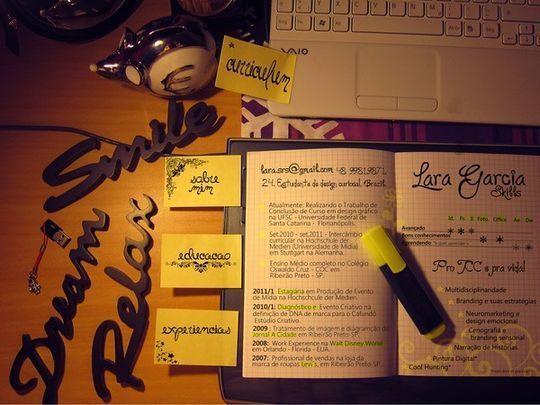 VAIO
curriculum
Smile
Dream
Relax
sobre
mim
educacao
experiencias
24. Estudante de design curiosa!, Brazil
Atualmente: Realizando o Trabalho de
Conclusão de Curso em design gráfico
na UFSC - Universidade Federal de
Santa Catarina - Florianópolis.
Set.2010 - set.2011 - Intercâmbio
curricular na Hochschule der
Medien (Universidade de Mídia)
em Stuttgart na Alemanha.
Ensino Médio completo no Colégio
Oswaldo Cruz - COC em
Ribeirão Preto - SP.
2011/1: Estagiária em Produção de Evento
de Mídia na Hochschule der Medien.
2010/1: Diagnóstico e Evento Criativo na
definição de DNA de marca para o Cafundo
Estúdio Criativo.
2009 : Tratamento de imagem e diagramação do
Jornal A Cidade em Ribeirão Preto-SP.
2008: Work Experience na Walt Disney World
em Orlando - Florida - EUA.
2007: Profissional de vendas na loja da
marca de roupas Levi's, em Ribeirão Preto-SP.
Lara Garcia
Skills
Id Ps Il Foto. Office Ae Dw
Avançado
Bons conhecimentos
Aprendendo
Pro TCC e pra vida!
Multidisciplinaridade
Branding e suas estratégias
Neuromarketing e
design emocional
Cenografia e
branding sensorial
Narração de Histórias
Pintura Digital*
Cool Hunting*